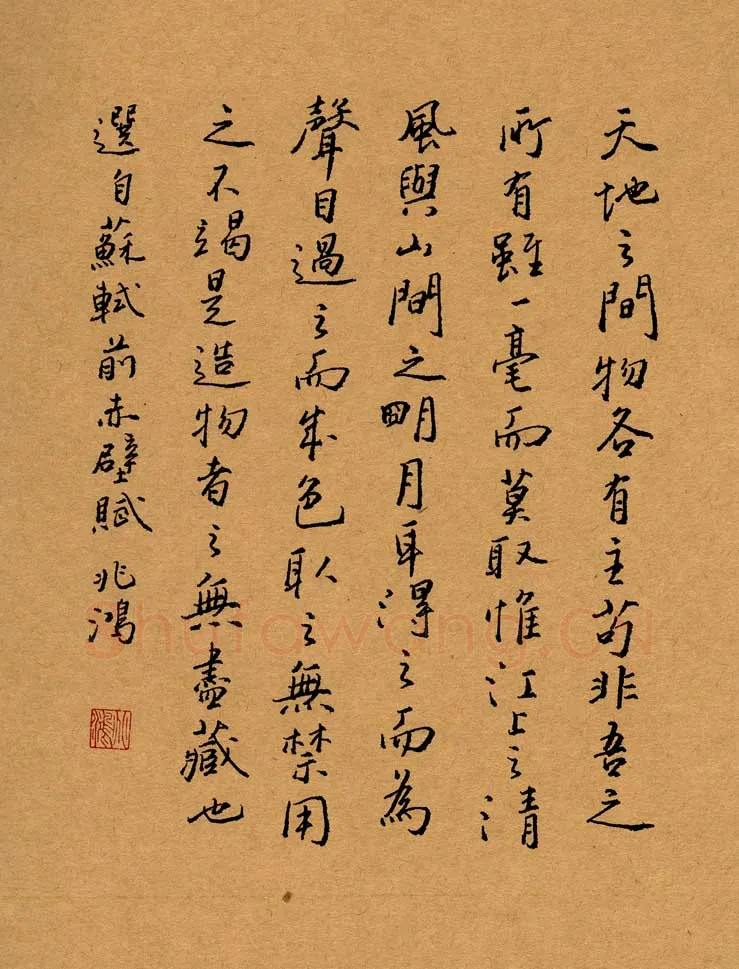 天地之間物各有主苟非吾之
所有雖一毫而莫取惟江上之清
風與山間之明月耳得之而為
聲目遇之而成色取之無禁用
之不竭是造物者之無盡藏也
選自蘇軾前赤壁賦 兆鴻
兆鴻
Shufawang.CN